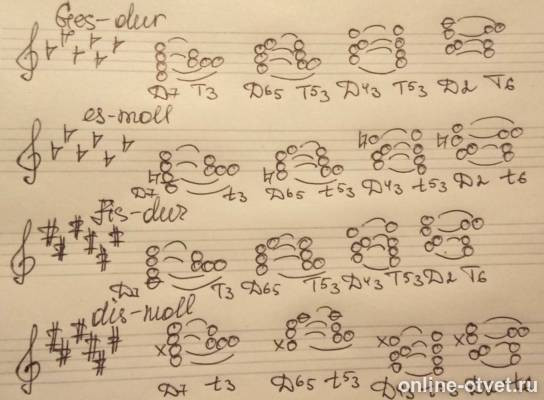 Ges-dur
D7 T3 D65 T53 D43 T53 D2 T6
es-moll
D7 t3 D65 t53 D43 t53 D2 t6
Fis-dur
D7 T3 D65 T53 D43 T53 D2 T6
dis-moll
D7 t3 D65 t53
online-otvet.ru